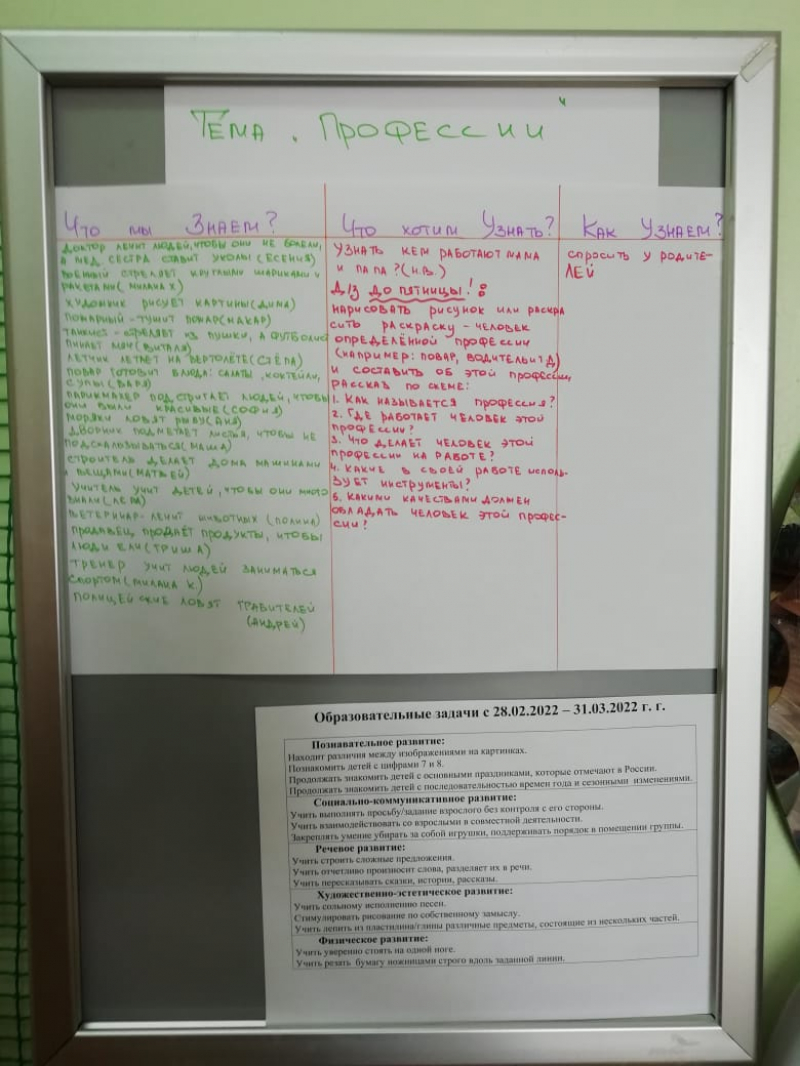 Тема „Профессии"
Что мы Знаем?
Доктор лечит людей, чтобы они не болели,
а мед. сестра ставит уколы (Есения)
Военный стреляет круглыми шариками и
ракетами (Милана Х)
Художник рисует картины (Дима)
Пожарный - тушит пожар (Макар)
Танкист - стреляет из пушки, а футболист
пинает мяч (Виталя)
Летчик летает на вертолёте (Стёпа)
Повар готовит блюда: салаты, коктейли,
супы (Варя)
Парикмахер подстригает людей, чтобы
они были красивые (София)
Моряки ловят рыбу (Аня)
Дворник подметает листья, чтобы не
подскальзываться (Маша)
Строитель делает дома машинами
и вещами (Матвей)
Учитель учит детей, чтобы они много
знали (Лера)
Ветеринар - лечит животных (Полина)
Продавец продаёт продукты, чтобы
люди ели (Гриша)
Тренер учит людей заниматься
спортом (Милана К)
Полицейские ловят грабителей
(Андрей)
Что хотим Узнать?
Узнать кем работают мама
и папа? (н.в.)
Д/з до пятницы!:
нарисовать рисунок или раскра
сить раскраску - человек
определённой профессии
(например: повар, водитель и т.д)
и составить об этой профессии,
рассказ по схеме:
1. Как называется профессия?
2. Где работает человек этой
профессии?
3. Что делает человек этой
профессии на работе?
4. Какие в своей работе исполь-
зует инструменты?
5. Какими качествами должен
обладать человек этой профес-
сии?
Как Узнаем?
спросить у родите-
лей
Образовательные задачи с 28.02.2022 – 31.03.2022 г. г.
Познавательное развитие:
Находит различия между изображениями на картинках.
Познакомить детей с цифрами 7 и 8.
Продолжать знакомить детей с основными праздниками, которые отмечают в России.
Продолжать знакомить детей с последовательностью времен года и сезонными изменениями.
Социально-коммуникативное развитие:
Учить выполнять просьбу/задание взрослого без контроля с его стороны.
Учить взаимодействовать со взрослыми в совместной деятельности.
Закреплять умение убирать за собой игрушки, поддерживать порядок в помещении группы.
Речевое развитие:
Учить строить сложные предложения.
Учить отчетливо произносит слова, разделяет их в речи.
Учить пересказывать сказки, истории, рассказы.
Художественно-эстетическое развитие:
Учить сольному исполнению песен.
Стимулировать рисование по собственному замыслу.
Учить лепить из пластилина/глины различные предметы, состоящие из нескольких частей.
Физическое развитие:
Учить уверенно стоять на одной ноге.
Учить резать бумагу ножницами строго вдоль заданной линии.